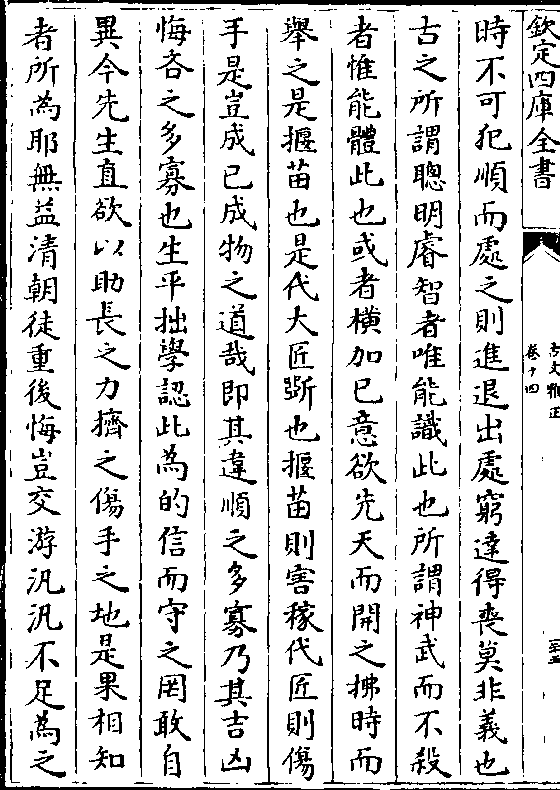 欽定四庫全書
古文雅正
卷十四
時不可犯順而處之則進退出處窮達得喪莫非義也
古之所謂聰明睿智者唯能識此也所謂神武而不殺
者惟能體此也或者横加已意欲先天而開之拂時而
舉之是揠苗也是代大匠斲也揠苗則害稼代匠則傷
手是豈成已成物之道哉即其違順之多寡乃其吉凶
悔吝之多寡也生平拙學認此為的信而守之罔敢自
異今先生直欲以助長之力擠之傷手之地是果相知
者所為耶無益清朝徒重後悔豈交游汎汎不足為之